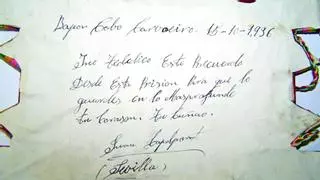 Dayon Cobo Carvoeiro. 15-10-1936
Ine Dedatico Este Recuerdo
Desde Esta Prision Para que lo
guardes en lo Mas profundo
tu Corazon. Tu Cuñao.
Juan
(Sevilla)